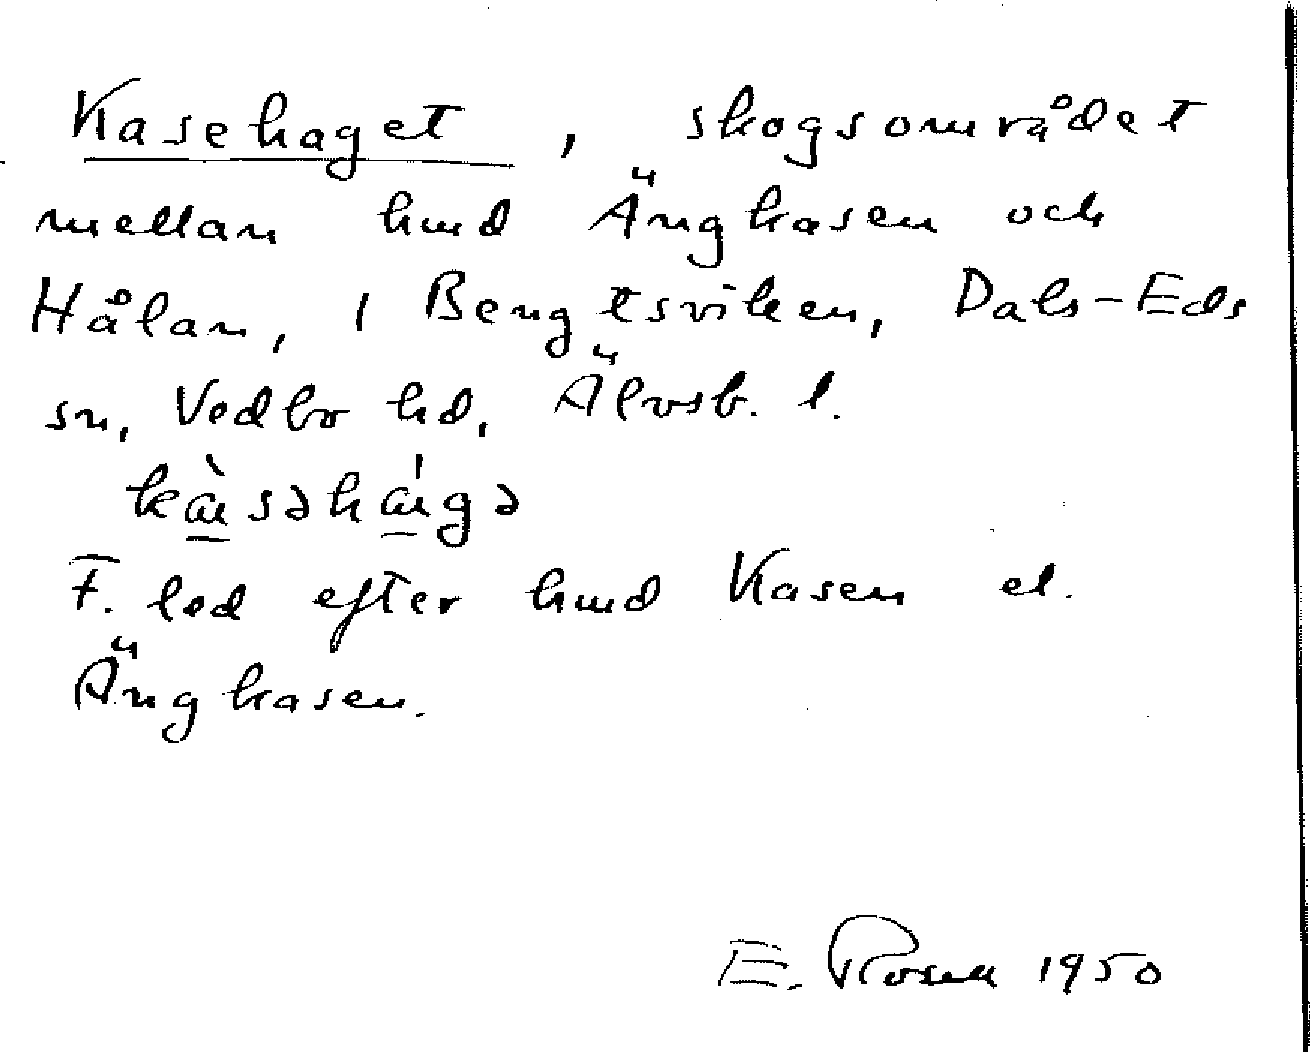 Kasehaget, skogsområdet
mellan hmd Ängkasen och
Hålan, i Bengtsviken, Dals-Eds
sn, Vedbo hd, Älvsb. l.
F. led efter hmd Kasen el.
Ängkasen.
E. Rosell 1950